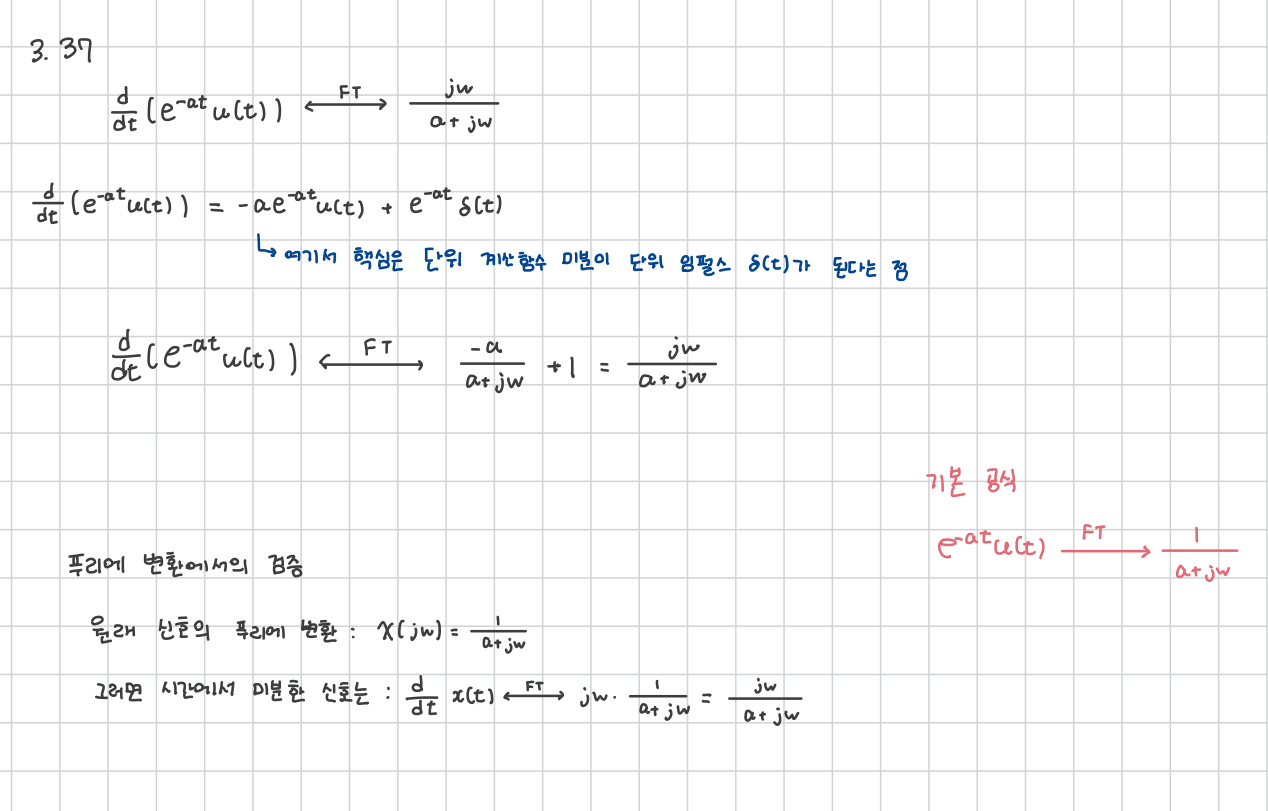 3. 37
d/dt (e^-at u(t)) ←FT→ jw / a + jw
d/dt (e^-at u(t)) = -ae^-at u(t) + e^-at δ(t)
↳ 여기서 핵심은 단위 계산함수 미분이 단위 임펄스 δ(t)가 된다는 점
d/dt (e^-at u(t)) ←FT→ -a / a+jw + 1 = jw / a+jw
기본 공식
e^-at u(t) FT→ 1 / a+jw
푸리에 변환에서의 검증
원래 신호의 푸리에 변환 : X(jw) = 1 / a+jw
그러면 시간에서 미분한 신호는 : d/dt x(t) ←FT→ jw · 1 / a+jw = jw / a+jw